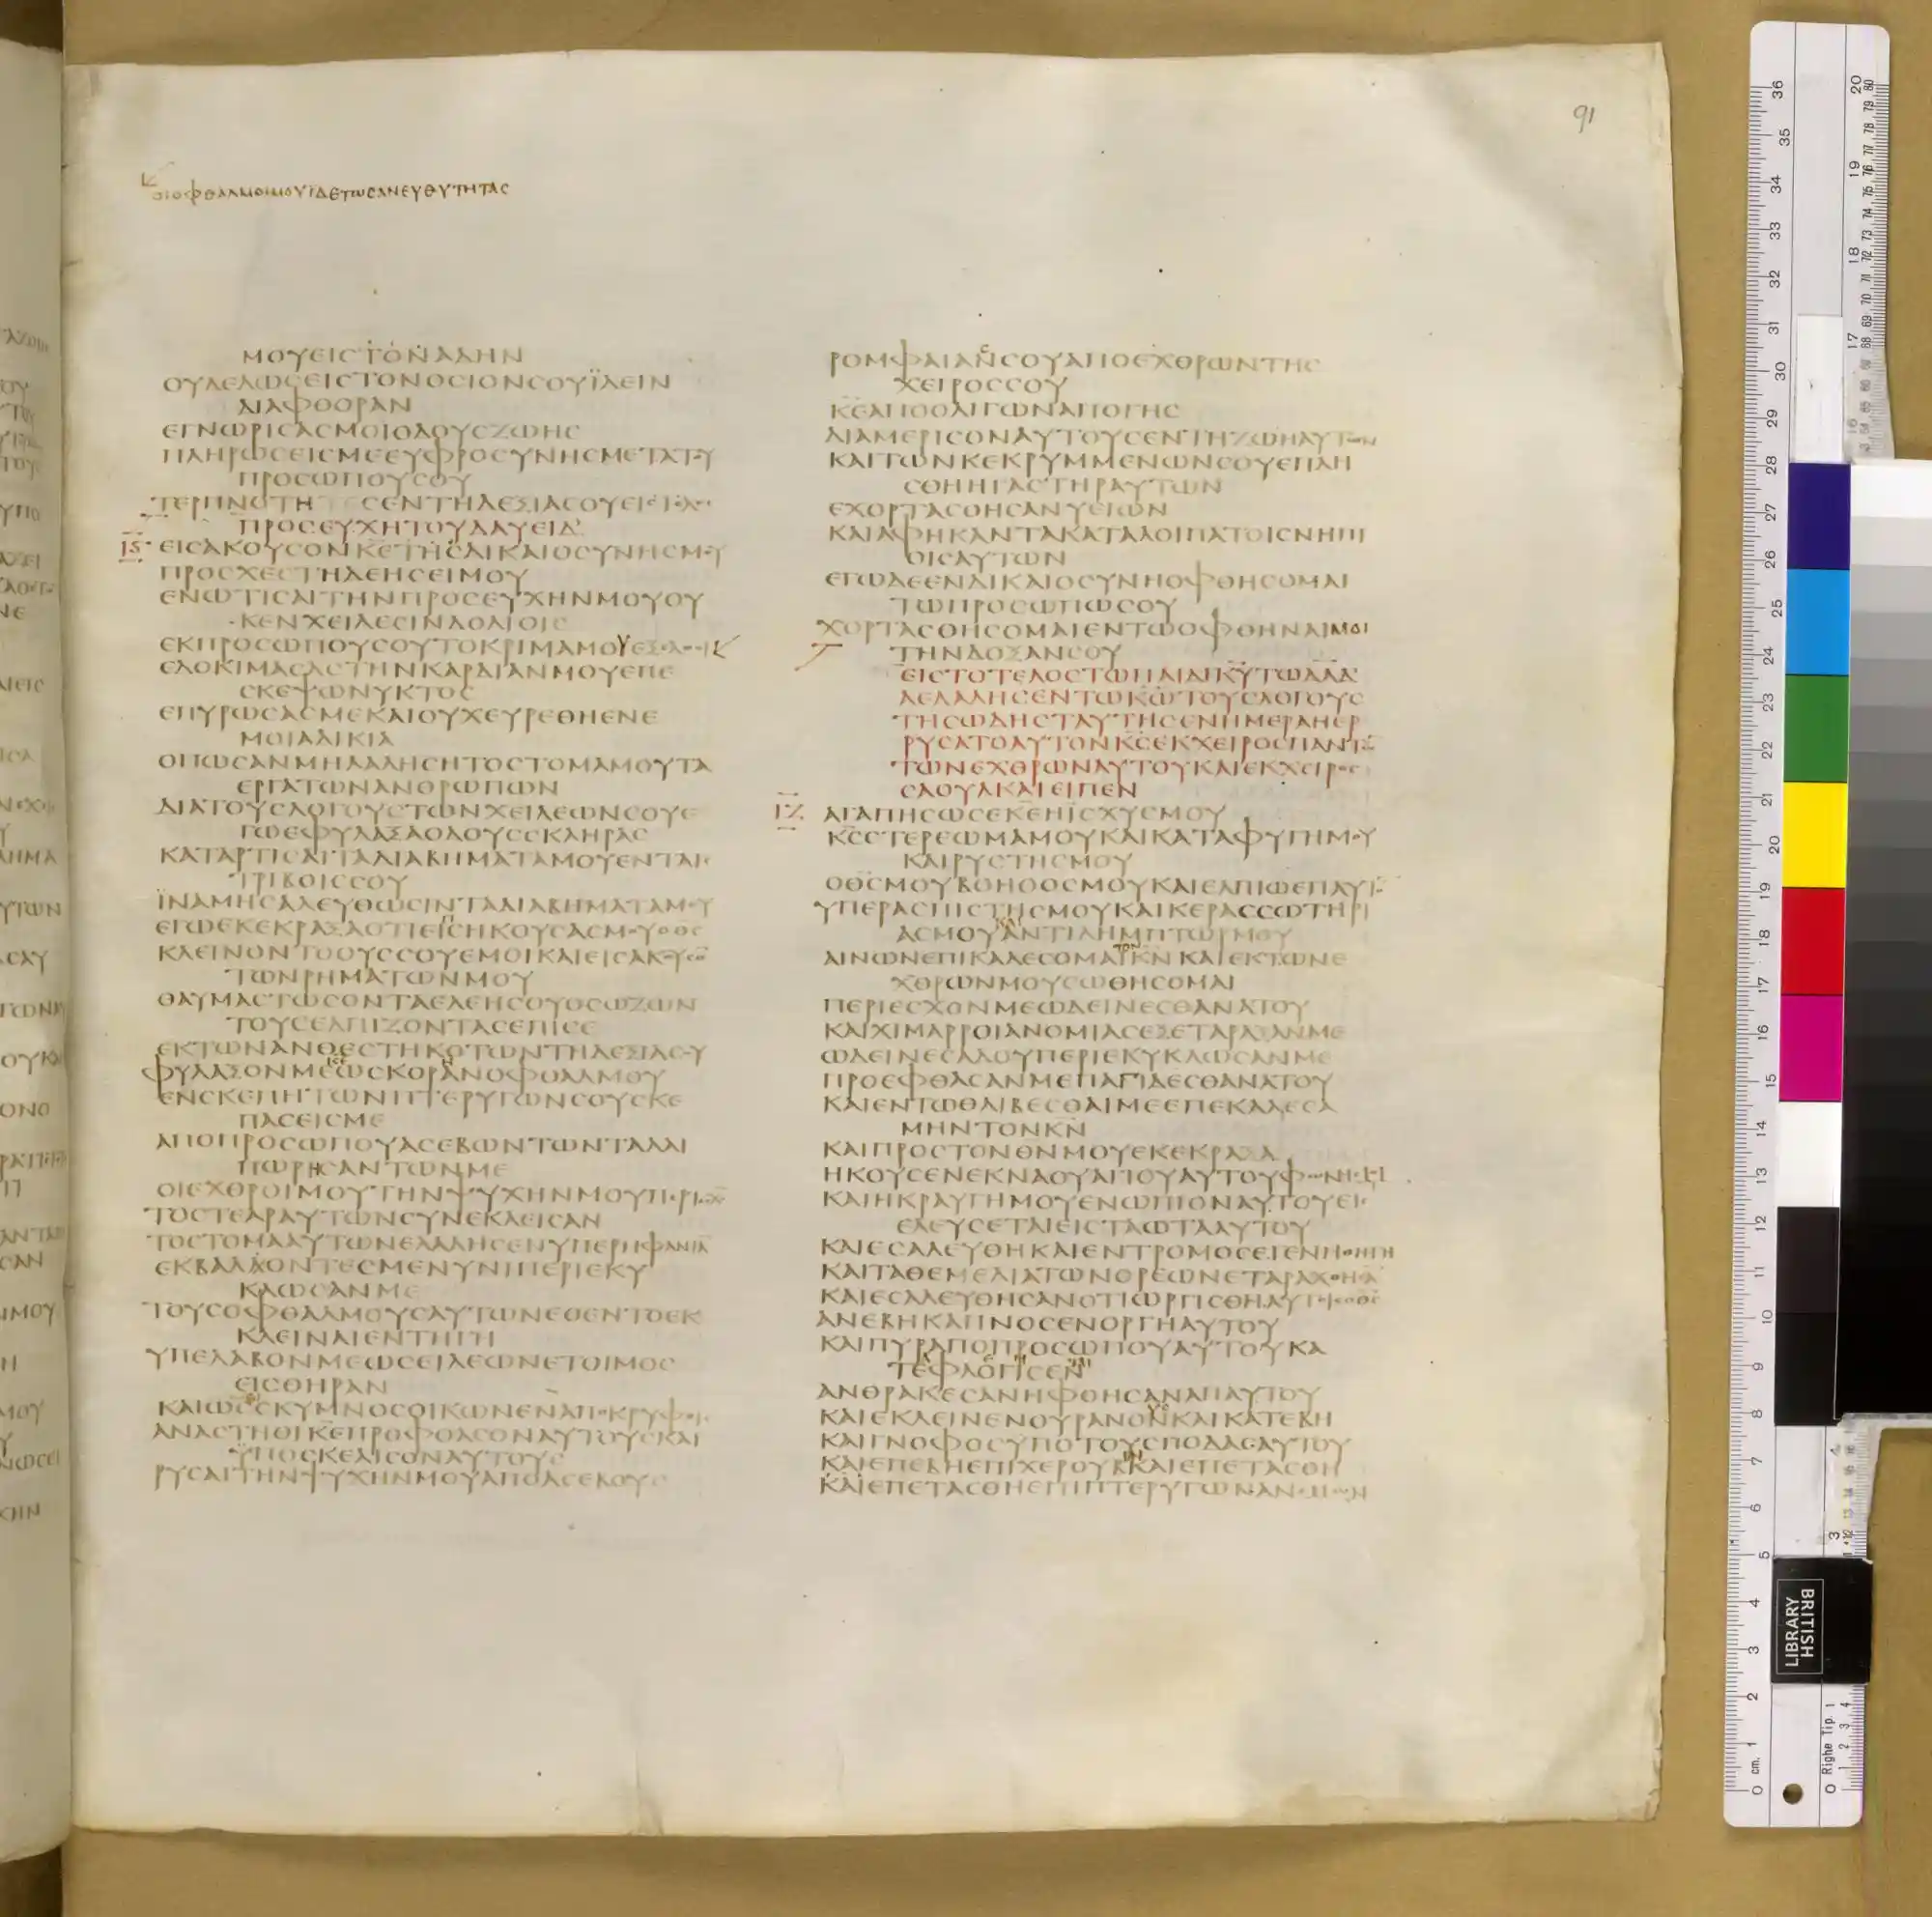 91
ΟΙΟΦΘΑΛΜΟΙΜΟΥΪΔΕΤΩCΑΝΕΥΘΥΤΗΤΑC
ΜΟΥΕΙCΤΟΝΑΔΗΝ
ΟΥΔΕΔΩCΕΙCΤΟΝΟCΙΟΝCΟΥΪΔΕΙΝ
ΔΙΑΦΘΟΡΑΝ
ΕΓΝΩΡΙCΑCΜΟΙΟΔΟΥCΖΩΗC
ΠΛΗΡΩCΕΙCΜΕΕΥΦΡΟCΥΝΗCΜΕΤΑΤΟΥ
ΠΡΟCΩΠΟΥCΟΥ
ΤΕΡΠΝΟΤΗ CΕΝΤΗΔΕΞΙΑCΟΥ
ΠΡΟCΕΥΧΗΤΟΥΔΑΥΕΙΔ
ΙϚ ΕΙCΑΚΟΥCΟΝΚ̅Ε̅ΤΗCΔΙΚΑΙΟCΥΝΗCΜΟΥ
ΠΡΟCΧΕCΤΗΔΕΗCΕΙΜΟΥ
ΕΝΩΤΙCΑΙΤΗΝΠΡΟCΕΥΧΗΝΜΟΥΟΥ
ΚΕΝΧΕΙΛΕCΙΝΔΟΛΙΟΙC
ΕΚΠΡΟCΩΠΟΥCΟΥΤΟΚΡΙΜΑΜΟΥ
ΕΔΟΚΙΜΑCΑCΤΗΝΚΑΡΔΙΑΝΜΟΥΕΠΕ
CΚΕΨΩΝΥΚΤΟC
ΕΠΥΡΩCΑCΜΕΚΑΙΟΥΧΕΥΡΕΘΗΕΝΕ
ΜΟΙΑΔΙΚΙΑ
ΟΠΩCΑΝΜΗΛΑΛΗCΗΤΟCΤΟΜΑΜΟΥΤΑ
ΕΡΓΑΤΩΝΑΝΘΡΩΠΩΝ
ΔΙΑΤΟΥCΛΟΓΟΥCΤΩΝΧΕΙΛΕΩΝCΟΥΕ
ΓΩΕΦΥΛΑΞΑΟΔΟΥCCΚΛΗΡΑC
ΚΑΤΑΡΤΙCΑΙΤΑΔΙΑΒΗΜΑΤΑΜΟΥΕΝΤΑΙC
ΤΡΙΒΟΙCCΟΥ
ΪΝΑΜΗCΑΛΕΥΘΩCΙΝΤΑΔΙΑΒΗΜΑΤΑΜΟΥ
ΕΓΩΕΚΕΚΡΑΞΑΟΤΙΕΠCΗΚΟΥCΑCΜΟΥΟΘC
ΚΛΕΙΝΟΝΤΟΟΥCCΟΥΕΜΟΙΚΑΙΕΙCΑΚΟΥCΟ
ΤΩΝΡΗΜΑΤΩΝΜΟΥ
ΘΑΥΜΑCΤΩCΟΝΤΑΕΛΕΗCΟΥΟCΩΖΩΝ
ΤΟΥCΕΛΠΙΖΟΝΤΑCΕΠΙCΕ
ΕΚΤΩΝΑΝΘΕCΤΗΚΟΤΩΝΤΗΔΕΞΙΑCΟΥ
ΦΥΛΑΞΟΝΜΕΩCΚΟΡΑΝΟΦΘΑΛΜΟΥ
ΕΝCΚΕΠΗΤΩΝΠΤΕΡΥΓΩΝCΟΥCΚΕ
ΠΑCΕΙCΜΕ
ΑΠΟΠΡΟCΩΠΟΥΑCΕΒΩΝΤΩΝΤΑΛΑΙ
ΠΩΡΗCΑΝΤΩΝΜΕ
ΟΙΕΧΘΡΟΙΜΟΥΤΗΝΨΥΧΗΝΜΟΥΠΕΡΙΕΧ
ΤΟCΤΕΑΡΑΥΤΩΝCΥΝΕΚΛΕΙCΑΝ
ΤΟCΤΟΜΑΑΥΤΩΝΕΛΑΛΗCΕΝΥΠΕΡΗΦΑΝΙΑ
ΕΚΒΑΛΛΟΝΤΕCΜΕΝΥΝΙΠΕΡΙΕΚΥ
ΚΛΩCΑΝΜΕ
ΤΟΥCΟΦΘΑΛΜΟΥCΑΥΤΩΝΕΘΕΝΤΟΕΚ
ΚΛΕΙΝΑΙΕΝΤΗΓΗ
ΥΠΕΛΑΒΟΝΜΕΩCΕΙΛΕΩΝΕΤΟΙΜΟC
ΕΙCΘΗΡΑΝ
ΚΑΙΩCCΚΥΜΝΟCΟΙΚΩΝΕΝΑΠΟΚΡΥΦΟΙC
ΑΝΑCΤΗΘΙΚ̅Ε̅ΠΡΟΦΘΑCΟΝΑΥΤΟΥCΚΑΙ
ΫΠΟCΚΕΛΙCΟΝΑΥΤΟΥC
ΡΥCΑΙΤΗΝΨΥΧΗΝΜΟΥΑΠΟΑCΕΒΟΥC
ΡΟΜΦΑΙΑΝCΟΥΑΠΟΕΧΘΡΩΝΤΗC
ΧΕΙΡΟCCΟΥ
Κ̅Ε̅ΑΠΟΟΛΙΓΩΝΑΠΟΓΗC
ΔΙΑΜΕΡΙCΟΝΑΥΤΟΥCΕΝΤΗΖΩΗΑΥΤΩΝ
ΚΑΙΤΩΝΚΕΚΡΥΜΜΕΝΩΝCΟΥΕΠΛΗ
CΘΗΗΓΑCΤΗΡΑΥΤΩΝ
ΕΧΟΡΤΑCΘΗCΑΝΥΕΙΩΝ
ΚΑΙΑΦΗΚΑΝΤΑΚΑΤΑΛΟΙΠΑΤΟΙCΝΗΠΙ
ΟΙCΑΥΤΩΝ
ΕΓΩΔΕΕΝΔΙΚΑΙΟCΥΝΗΟΦΘΗCΟΜΑΙ
ΤΩΠΡΟCΩΠΩCΟΥ
ΧΟΡΤΑCΘΗCΟΜΑΙΕΝΤΩΟΦΘΗΝΑΙΜΟΙ
ΤΗΝΔΟΞΑΝCΟΥ
ΕΙCΤΟΤΕΛΟCΤΩΠΑΙΔΙΚ̅Υ̅ΤΩΔΑΔ
ΑΕΛΑΛΗCΕΝΤΩΚ̅Ω̅ΤΟΥCΛΟΓΟΥC
ΤΗCΩΔΗCΤΑΥΤΗCΕΝΗΜΕΡΑΗΕΡ
ΡΥCΑΤΟΑΥΤΟΝΚ̅C̅ΕΚΧΕΙΡΟCΠΑΝΤΩ
ΤΩΝΕΧΘΡΩΝΑΥΤΟΥΚΑΙΕΚΧΕΙΡΟC
CΑΟΥΛΚΑΙΕΙΠΕΝ
ΙΖ ΑΓΑΠΗCΩCΕΚ̅Ε̅ΗΙCΧΥCΜΟΥ
Κ̅C̅CΤΕΡΕΩΜΑΜΟΥΚΑΙΚΑΤΑΦΥΓΗΜΟΥ
ΚΑΙΡΥCΤΗCΜΟΥ
ΟΘ̅C̅ΜΟΥΒΟΗΘΟCΜΟΥΚΑΙΕΛΠΙΩΕΠΑΥΤ
ΥΠΕΡΑCΠΙCΤΗCΜΟΥΚΑΙΚΕΡΑCCΩΤΗΡΙ
ΑCΜΟΥΑΝΤΙΛΗΜΠΤΩΡΜΟΥ
ΑΙΝΩΝΕΠΙΚΑΛΕCΟΜΑΙΚ̅Ν̅ΚΑΙΕΚΤΩΝΕ
ΧΘΡΩΝΜΟΥCΩΘΗCΟΜΑΙ
ΠΕΡΙΕCΧΟΝΜΕΩΔΕΙΝΕCΘΑΝΑΤΟΥ
ΚΑΙΧΙΜΑΡΡΟΙΑΝΟΜΙΑCΕΞΕΤΑΡΑΞΑΝΜΕ
ΩΔΕΙΝΕCΑΔΟΥΠΕΡΙΕΚΥΚΛΩCΑΝΜΕ
ΠΡΟΕΦΘΑCΑΝΜΕΠΑΓΙΔΕCΘΑΝΑΤΟΥ
ΚΑΙΕΝΤΩΘΛΙΒΕCΘΑΙΜΕΕΠΕΚΑΛΕCΑ
ΜΗΝΤΟΝΚ̅Ν̅
ΚΑΙΠΡΟCΤΟΝΘ̅Ν̅ΜΟΥΕΚΕΚΡΑΞΑ
ΗΚΟΥCΕΝΕΚΝΑΟΥΑΓΙΟΥΑΥΤΟΥΦΩΝΗC
ΚΑΙΗΚΡΑΥΓΗΜΟΥΕΝΩΠΙΟΝΑΥΤΟΥΕΙC
ΕΛΕΥCΕΤΑΙΕΙCΤΑΩΤΑΑΥΤΟΥ
ΚΑΙΕCΑΛΕΥΘΗΚΑΙΕΝΤΡΟΜΟCΕΓΕΝΗΘΗΗΓΗ
ΚΑΙΤΑΘΕΜΕΛΙΑΤΩΝΟΡΕΩΝΕΤΑΡΑΧΘΗCΑ
ΚΑΙΕCΑΛΕΥΘΗCΑΝΟΤΙΩΡΓΙCΘΗΑΥΤΟΙCΟΘC
ΑΝΕΒΗΚΑΠΝΟCΕΝΟΡΓΗΑΥΤΟΥ
ΚΑΙΠΥΡΑΠΟΠΡΟCΩΠΟΥΑΥΤΟΥΚΑ
ΤΕΦΛΟΓΙCΕΝ
ΑΝΘΡΑΚΕCΑΝΗΦΘΗCΑΝΑΠΑΥΤΟΥ
ΚΑΙΕΚΛΕΙΝΕΝΟΥΡΑΝΟΝΚΑΙΚΑΤΕΒΗ
ΚΑΙΓΝΟΦΟCΥΠΟΤΟΥCΠΟΔΑCΑΥΤΟΥ
ΚΑΙΕΠΕΒΗΕΠΙΧΕΡΟΥΒΚΑΙΕΠΕΤΑCΘΗ
ΚΑΙΕΠΕΤΑCΘΗΕΠΙΠΤΕΡΥΓΩΝΑΝΕΜΩΝ
BRITISH
LIBRARY